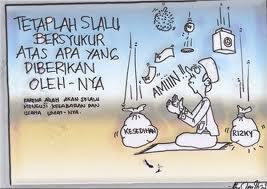 TETAPLAH SLALU
BERSYUKUR
ATAS APA YANG
DIBERIKAN
OLEH-NYA
KARENA ALLAH AKAN SELALU
MENGUJI KESABARAN DAN
UMAT-NYA.
AMIIN!!
KESEDIHAN
RIZKY